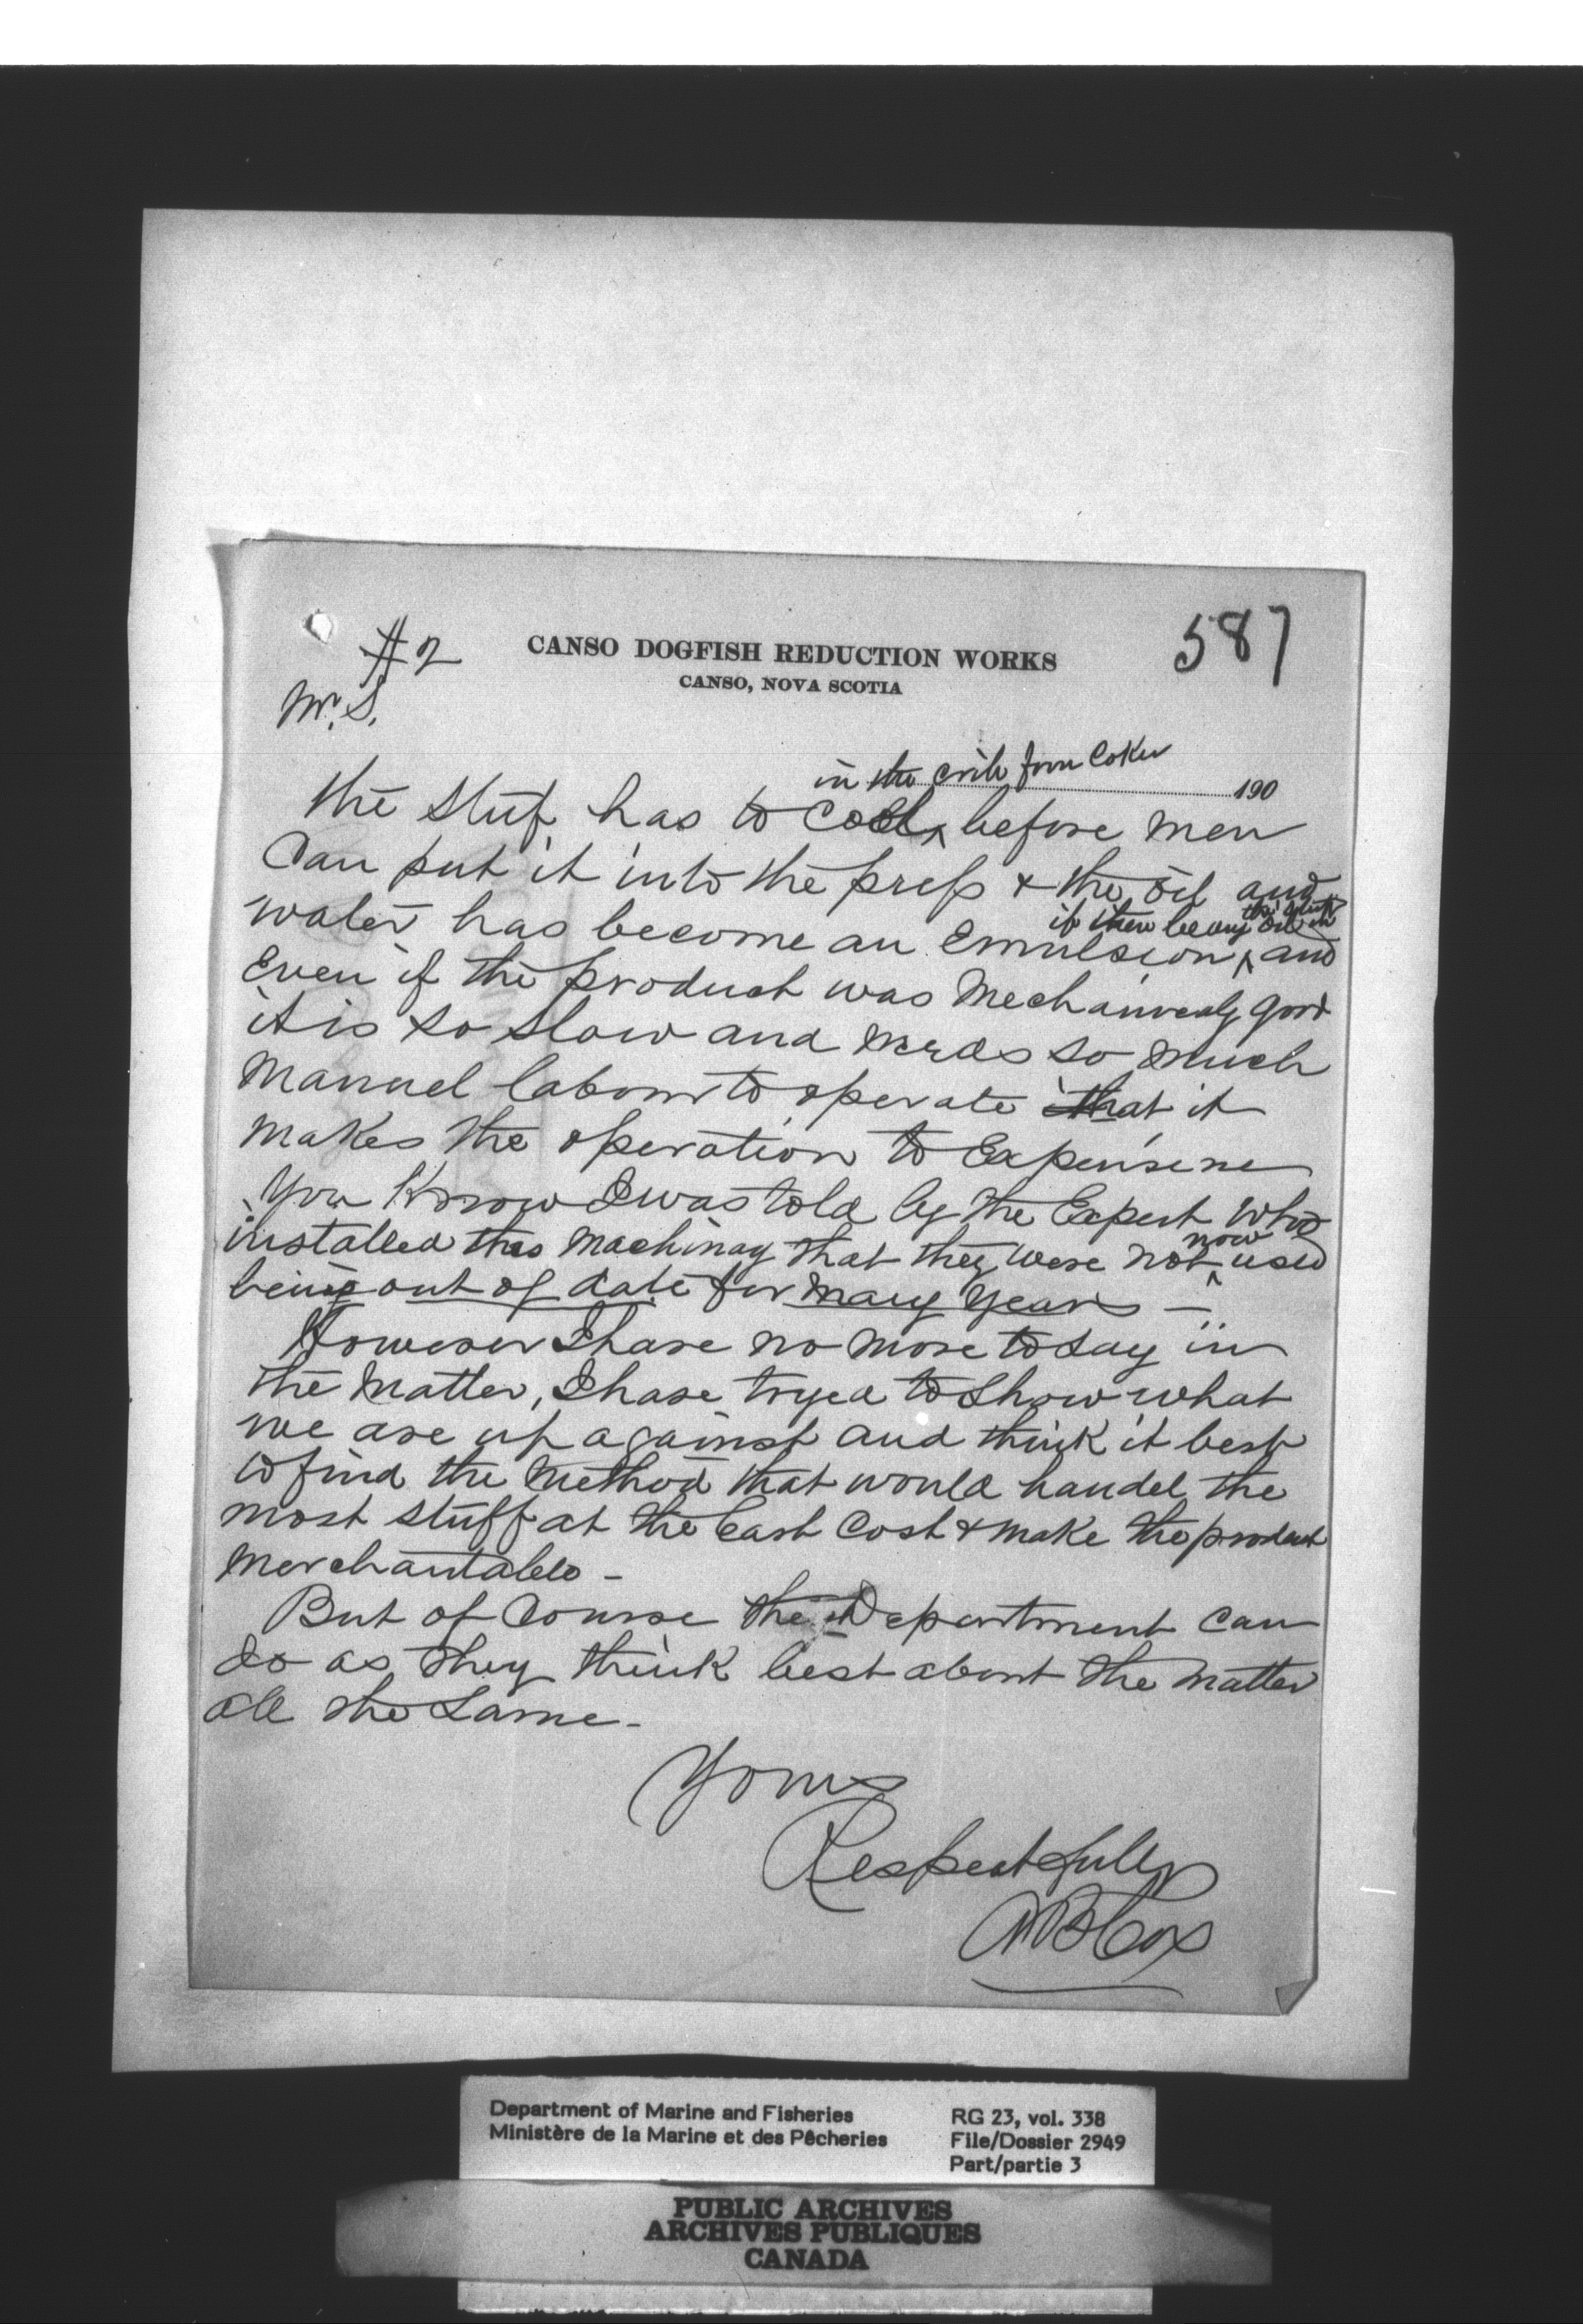 #2
CANSO DOGFISH REDUCTION WORKS
587
CANSO, NOVA SCOTIA
W. S.
in the from Coker
190
the stuf has to cool before men
Can put it into the press & the oil and
if there be any oil in
water has become an Emulsion and
Even if the product was Mechanicaly good
it is so slow and needs so much
Manuel labour to operate that it
Makes the operation to Expensive
You Know I was told by the Expert who
now
installed this Machinay that they were not used
being out of date for many years –
However I have no more to say in
the Matter, I have tryed to Show what
we are up against and think it best
to find the Method that would handel the
most stuff at the least Cost & make the product
Merchantable –
But of Course the Department can
do as they think best about the matter
all the Same –
Yours
Respectfully
A B Cox
Department of Marine and Fisheries
Ministère de la Marine et des Pêcheries
RG 23, vol. 338
File/Dossier 2949
Part/partie 3
PUBLIC ARCHIVES
ARCHIVES PUBLIQUES
CANADA